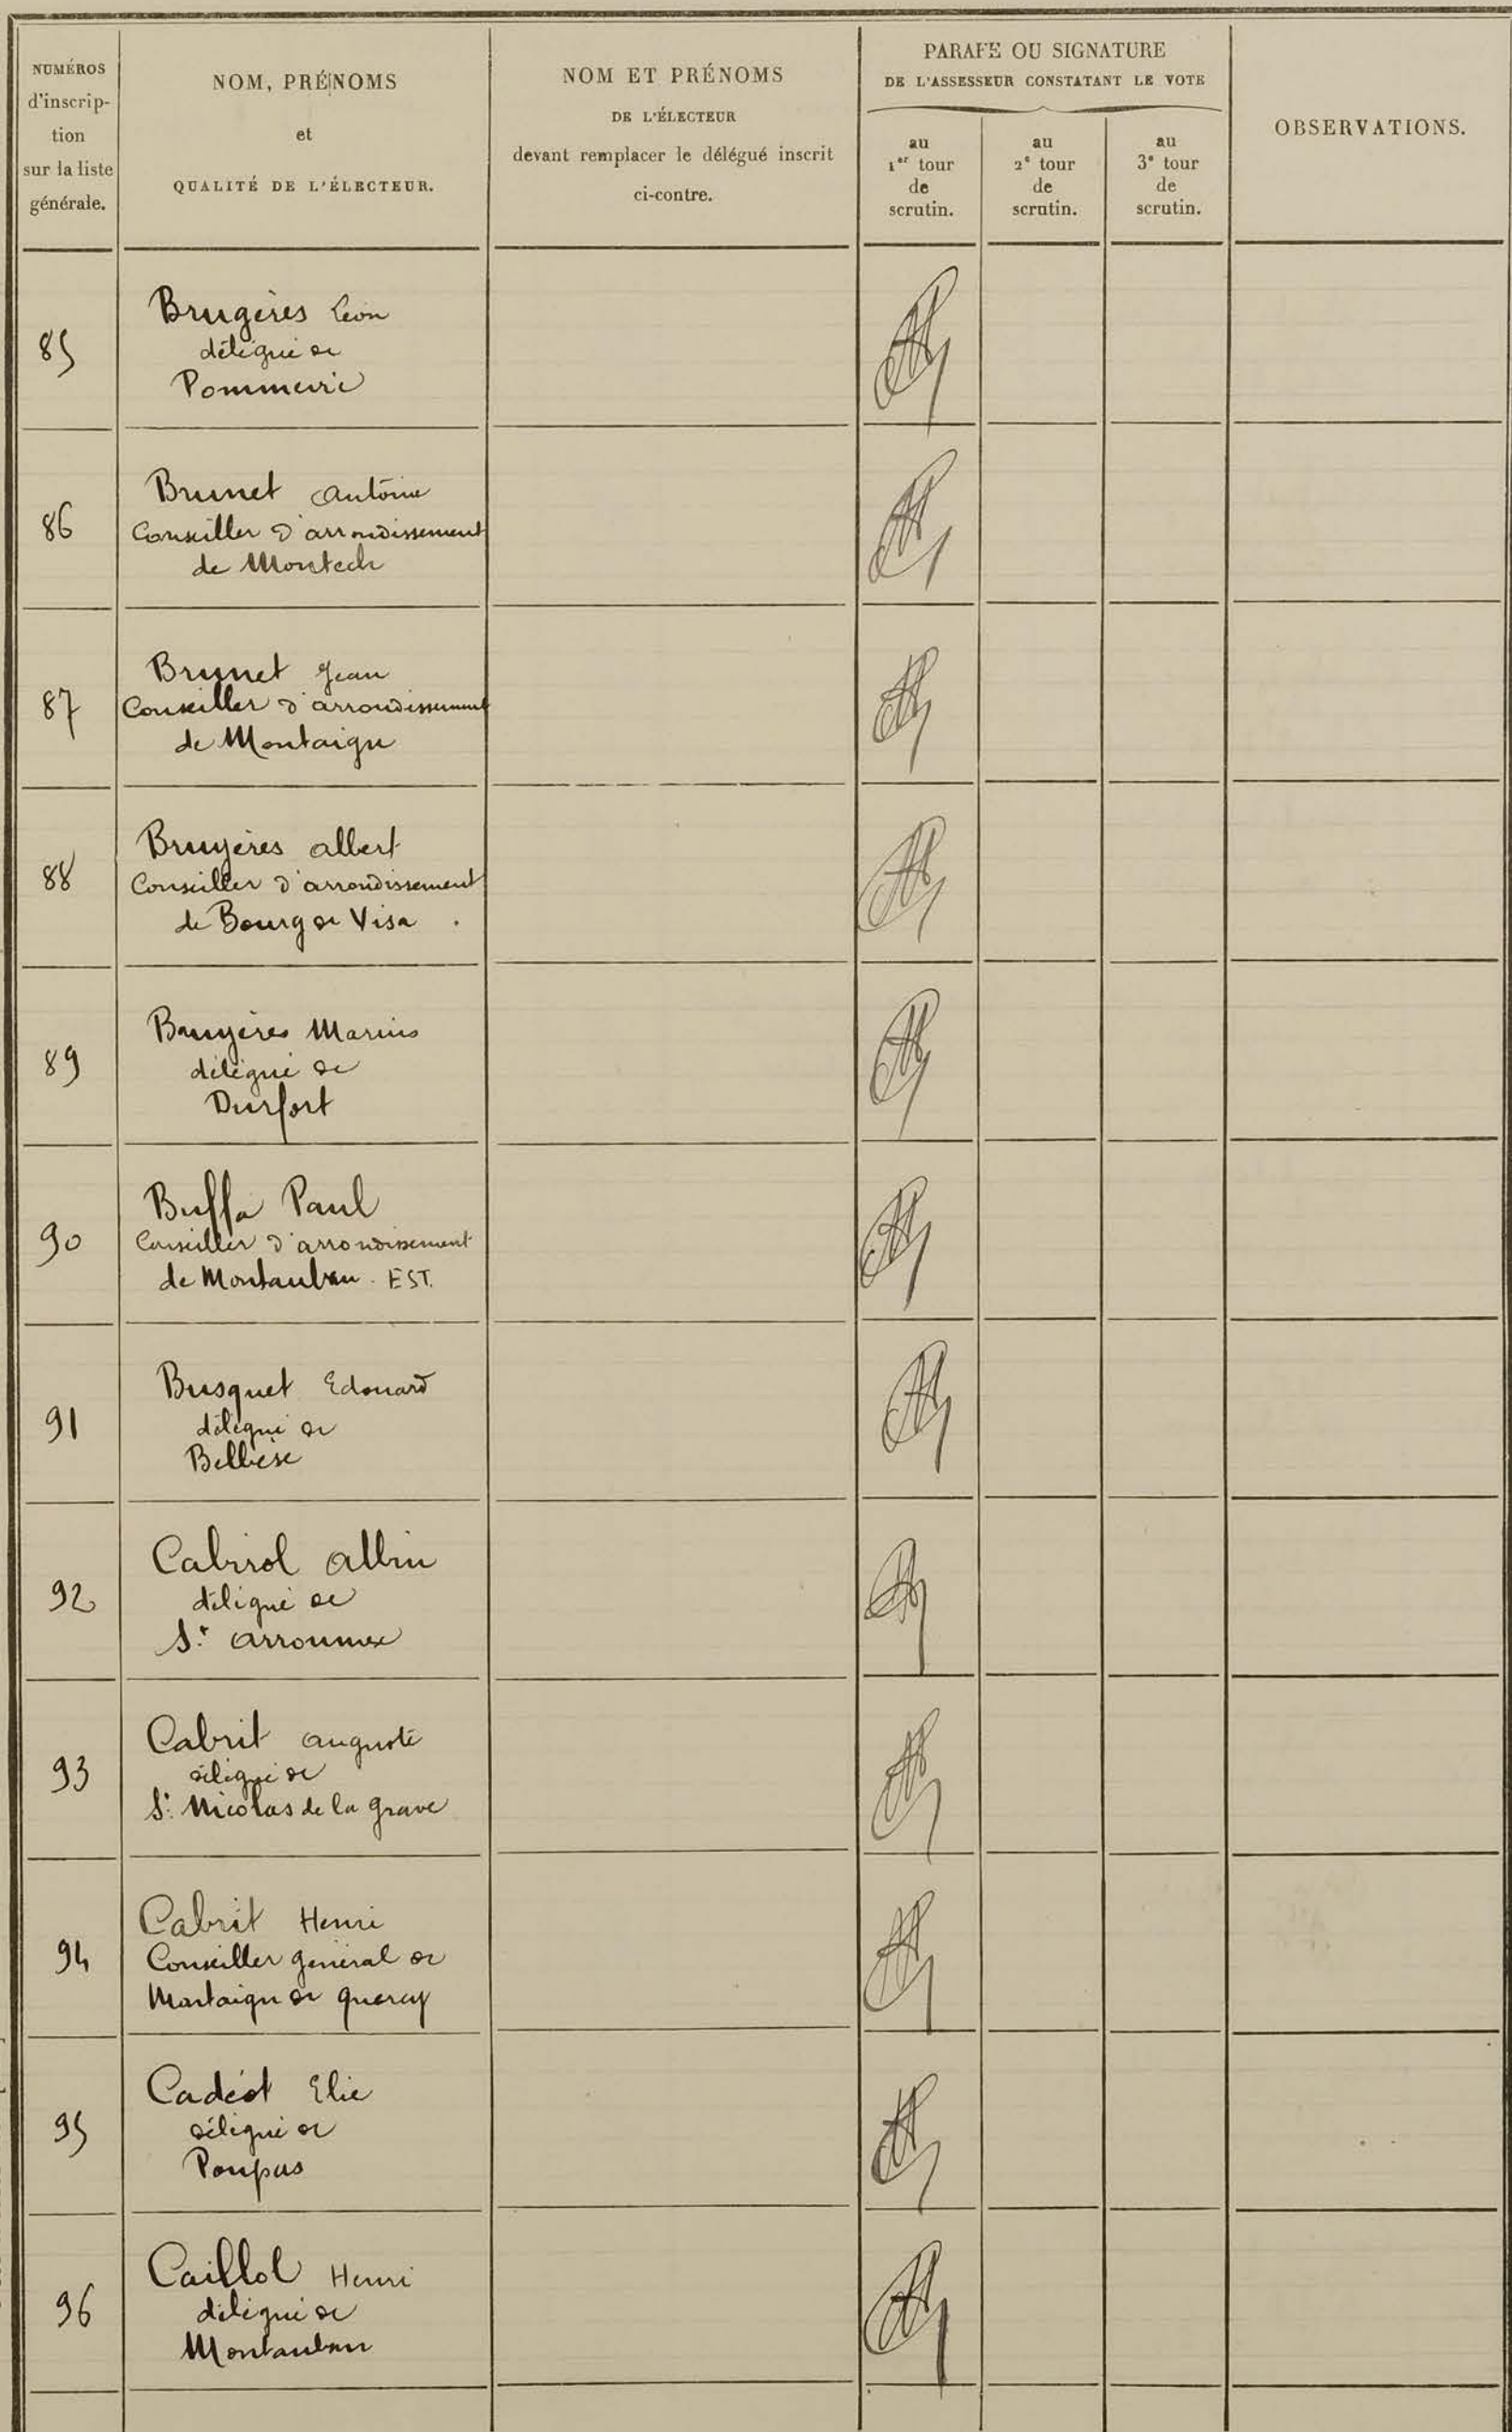 NUMÉROS
d'inscrip-
tion
sur la liste
générale.
NOM, PRÉNOMS
et
QUALITÉ DE L'ÉLECTEUR.
NOM ET PRÉNOMS
DE L'ÉLECTEUR
devant remplacer le délégué inscrit
ci-contre.
PARAFE OU SIGNATURE
DE L'ASSESSEUR CONSTATANT LE VOTE
au
1er tour
de
scrutin.
au
2e tour
de
scrutin.
au
3e tour
de
scrutin.
OBSERVATIONS.
85
Brugères Léon
délégué de
Pommevic
86
Brunet Antoine
Conseiller d'arrondissement
de Montech
87
Brunet Jean
Conseiller d'arrondissement
de Montaigu
88
Bruyères Albert
Conseiller d'arrondissement
de Bourg de Visa
89
Bruyères Marius
délégué de
Durfort
90
Buffa Paul
Conseiller d'arrondissement
de Montauban EST.
91
Busquet Edouard
délégué de
Belbèse
92
Cabirol Albin
délégué de
St Arroumex
93
Cabrit Auguste
délégué de
St Nicolas de la Grave
94
Cabrit Henri
Conseiller général de
Montaigu de Quercy
95
Cadéot Elie
délégué de
Poupas
96
Caillol Henri
délégué de
Montauban